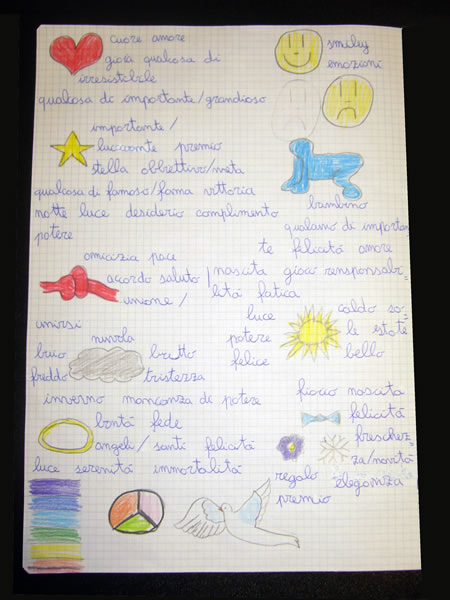 cuore amore
gioia qualcosa di
irresistibile
qualcosa di importante/grandioso
smiley
emozioni
importante/
luccicante premio
stella obbiettivo/meta
qualcosa di famoso/fama vittoria
notte luce desiderio complimento
potere
bambino
qualcuno di importan
te felicità amore
nascita gioco responsabi-
lità fatica
amicizia pace
acordo saluto /
unione /
unirsi
nuvola
buio brutto
freddo tristezza
inverno mancanza di potere
luce
potere
felice
caldo so=
le estate
bello
bontà fede
angeli/santi felicità
luce serenità immortalità
fiocco nascita
felicità
freschez-
za/novità
regalo "eleganza"
premio